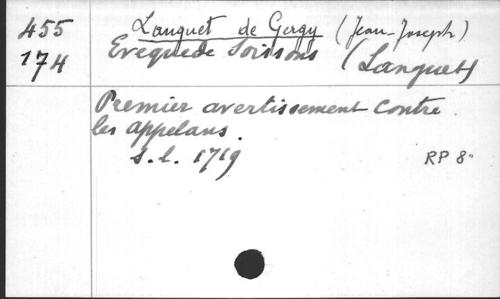 455 Languet de Gergy (Jean-Joseph)
174 Evêque de Soissons (Languet)
Premier avertissement contre
les appelans.
s.l. 1719 RP 8°